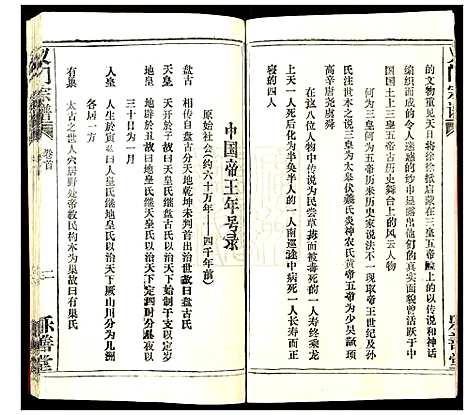 的文物重见天日将徐徐掀启蒙在三皇五帝脸上的以传说和神话
编织而成的令人迷惑的纱巾显露出他们的真实面貌曾活跃于中
国国土上三皇五帝古历史舞台上的风云人物
何为三皇何为五帝历来历史家说法不一现取帝王世纪及孙
氏注世本之说三皇为太皋伏羲氏炎神农氏黄帝五帝为少吴颛顼
高辛唐尧虞舜
在这八位人物中传说为民尝草药被毒死的一人寿终乘龙
上天一人死后化为半兔半人的一人南巡途中病死一人长寿而正
寝的四人
中国帝王年号录
原始社会(约六十万年——四千年前)
盘古 相传自盘古分天地乾坤未判首出治世故曰盘古氏
天皇 天皇辟于子故曰天皇氏继盘古氏以治天下始制干支以定岁
地皇 地皇辟于丑故曰地皇氏继天皇氏以治天下定四时分昼夜以
三十日为一月
人皇 人生於寅故曰人皇氏继地皇氏以治天下厥山川分为九洲
各居一方
有巢 太古之世人穴居野处帝教民构木为巢故曰有巢氏
义门宗谱
卷首
二
乐善堂